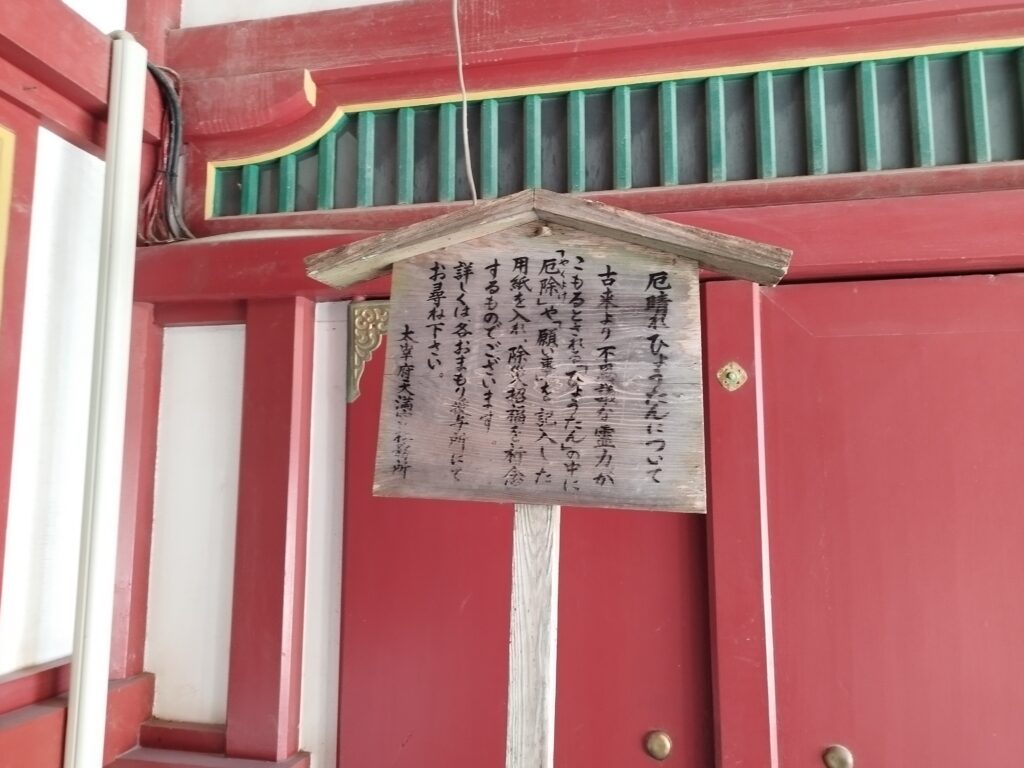 厄晴れひょうたんについて
古来より不思議な霊力が
こもるとされる「ひょうたん」の中に
「厄除」や「願い事」を記入した
やくよけ
用紙を入れ、除災招福を祈念
するものでございます。
詳しくは、各おまもり授与所にて
お尋ね下さい。
太宰府天満宮社務所